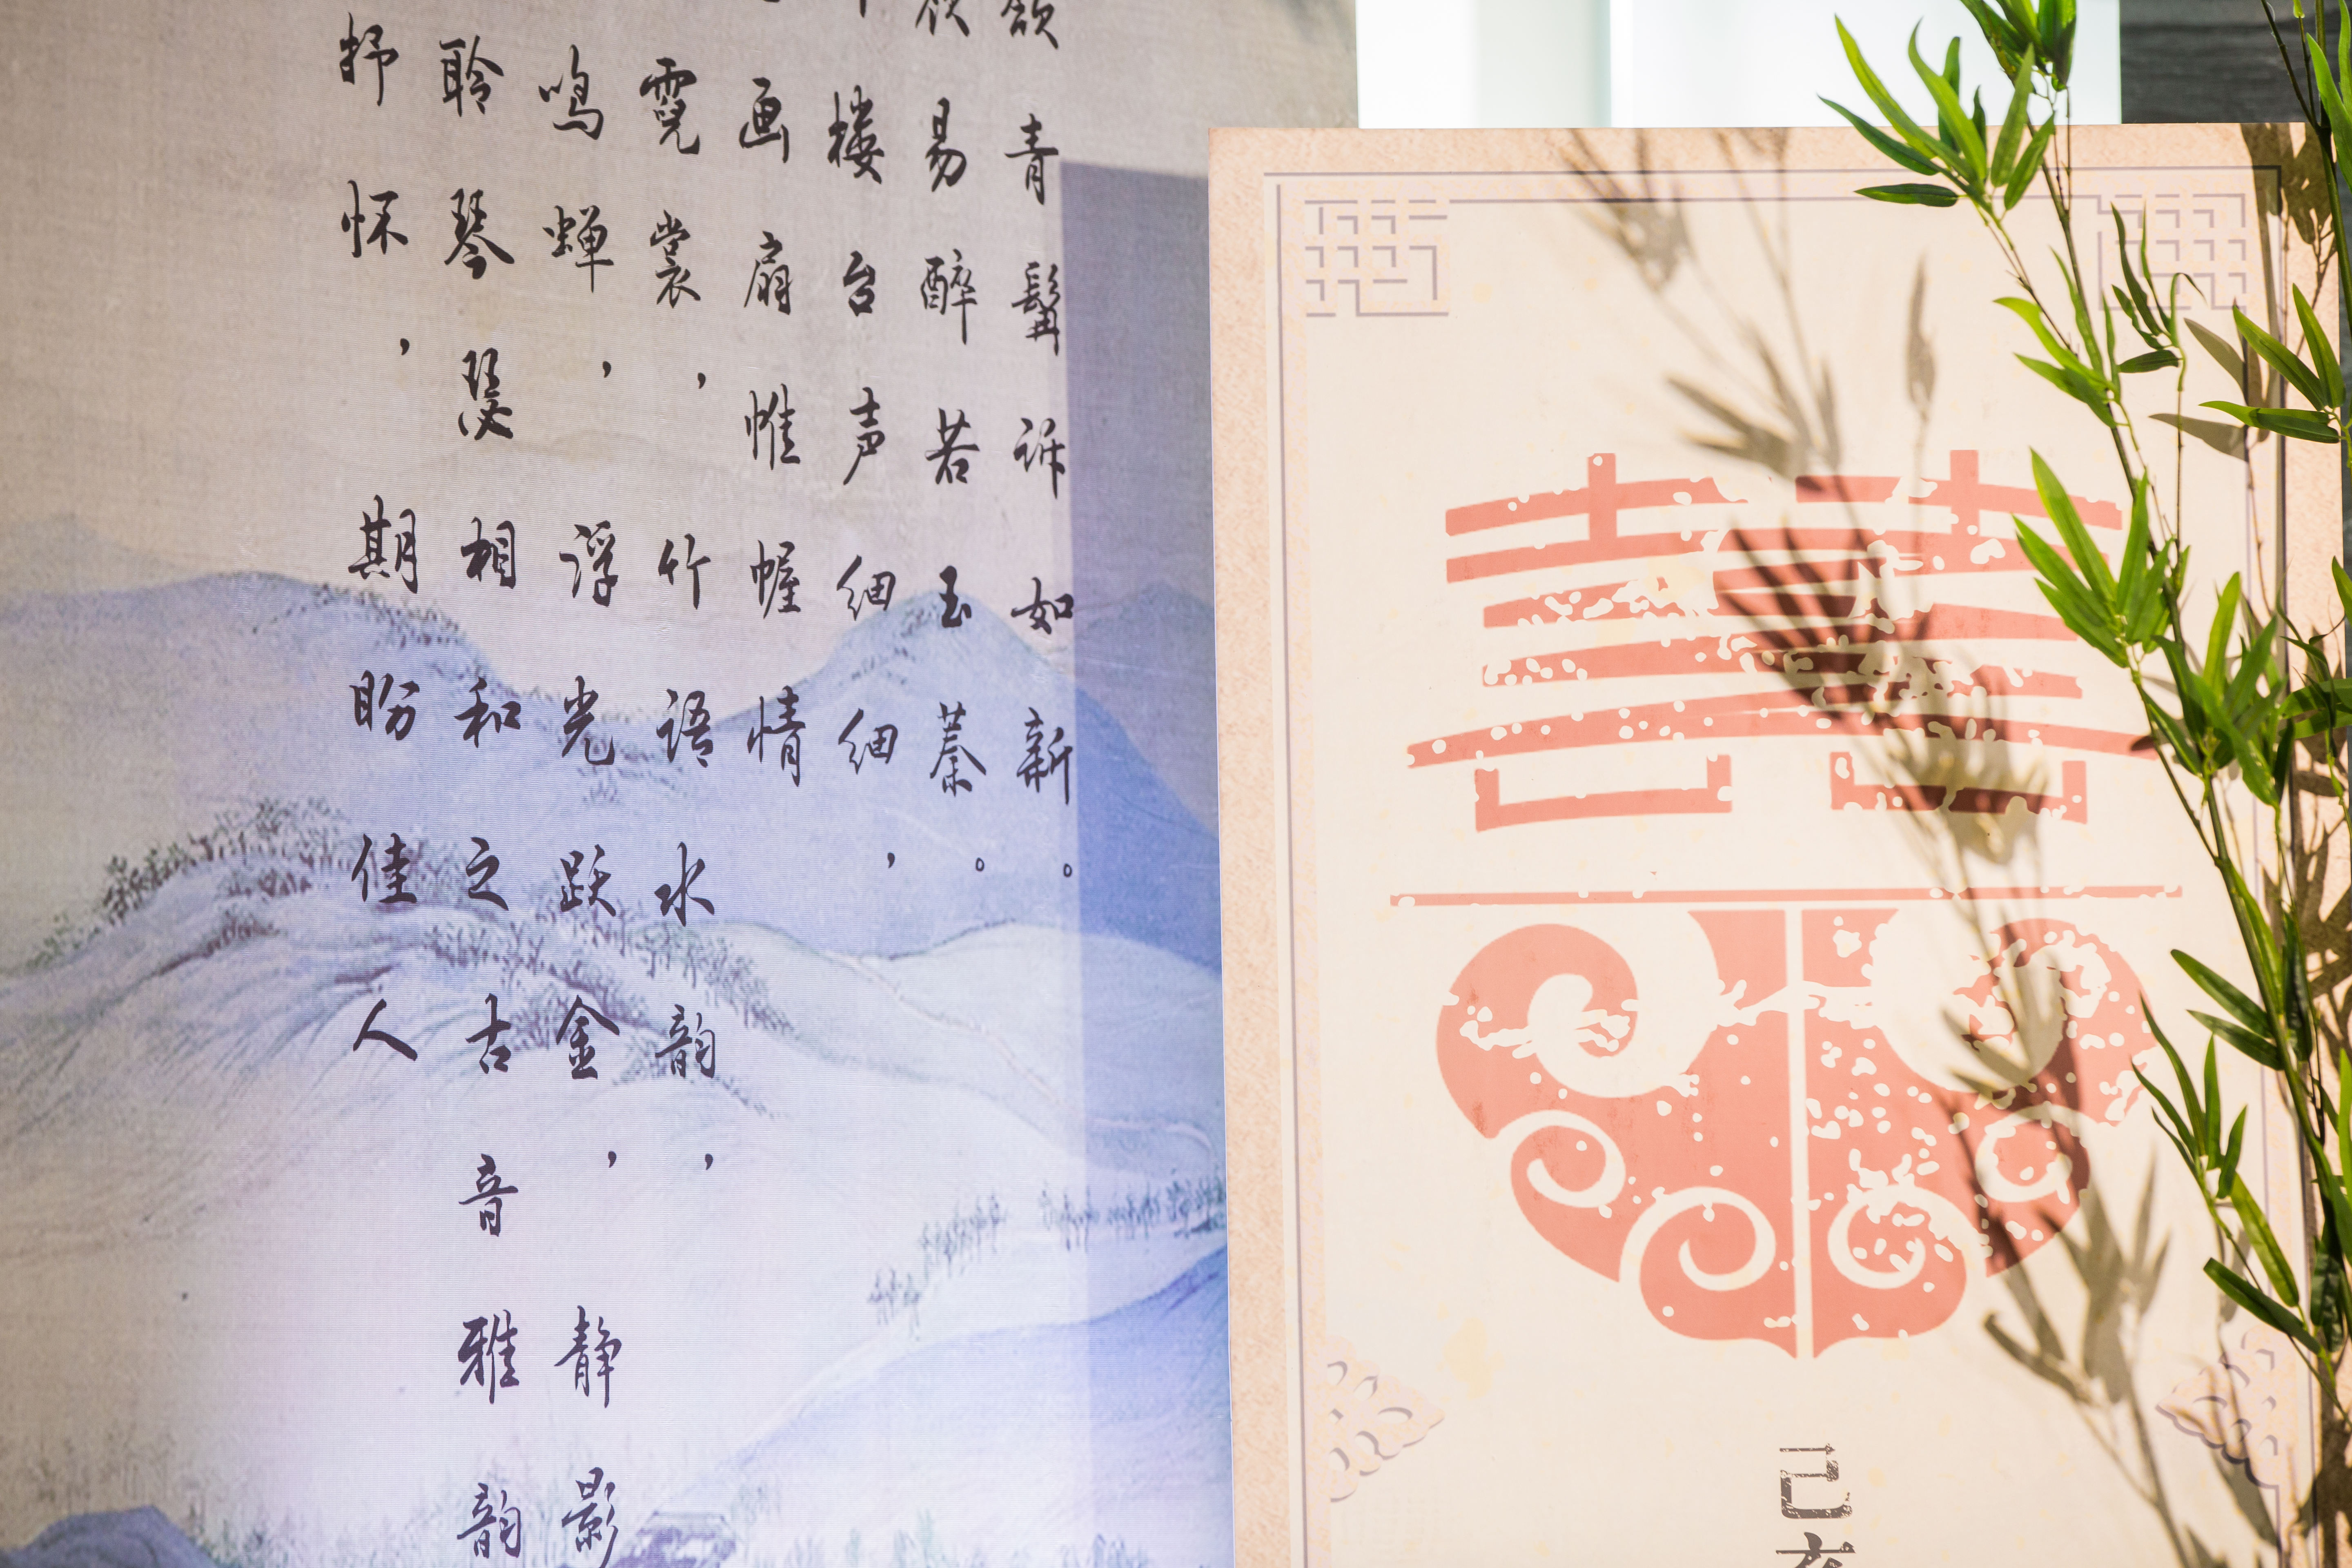 青鬢诉如新。
易醉若玉蓁。
楼台声细细，
画扇惟幄情
霓裳，竹语水韵，
鸣蝉，浮光跃金，静影
聆琴瑟相和之古音雅韵
抒怀，期盼佳人
囍
己亥